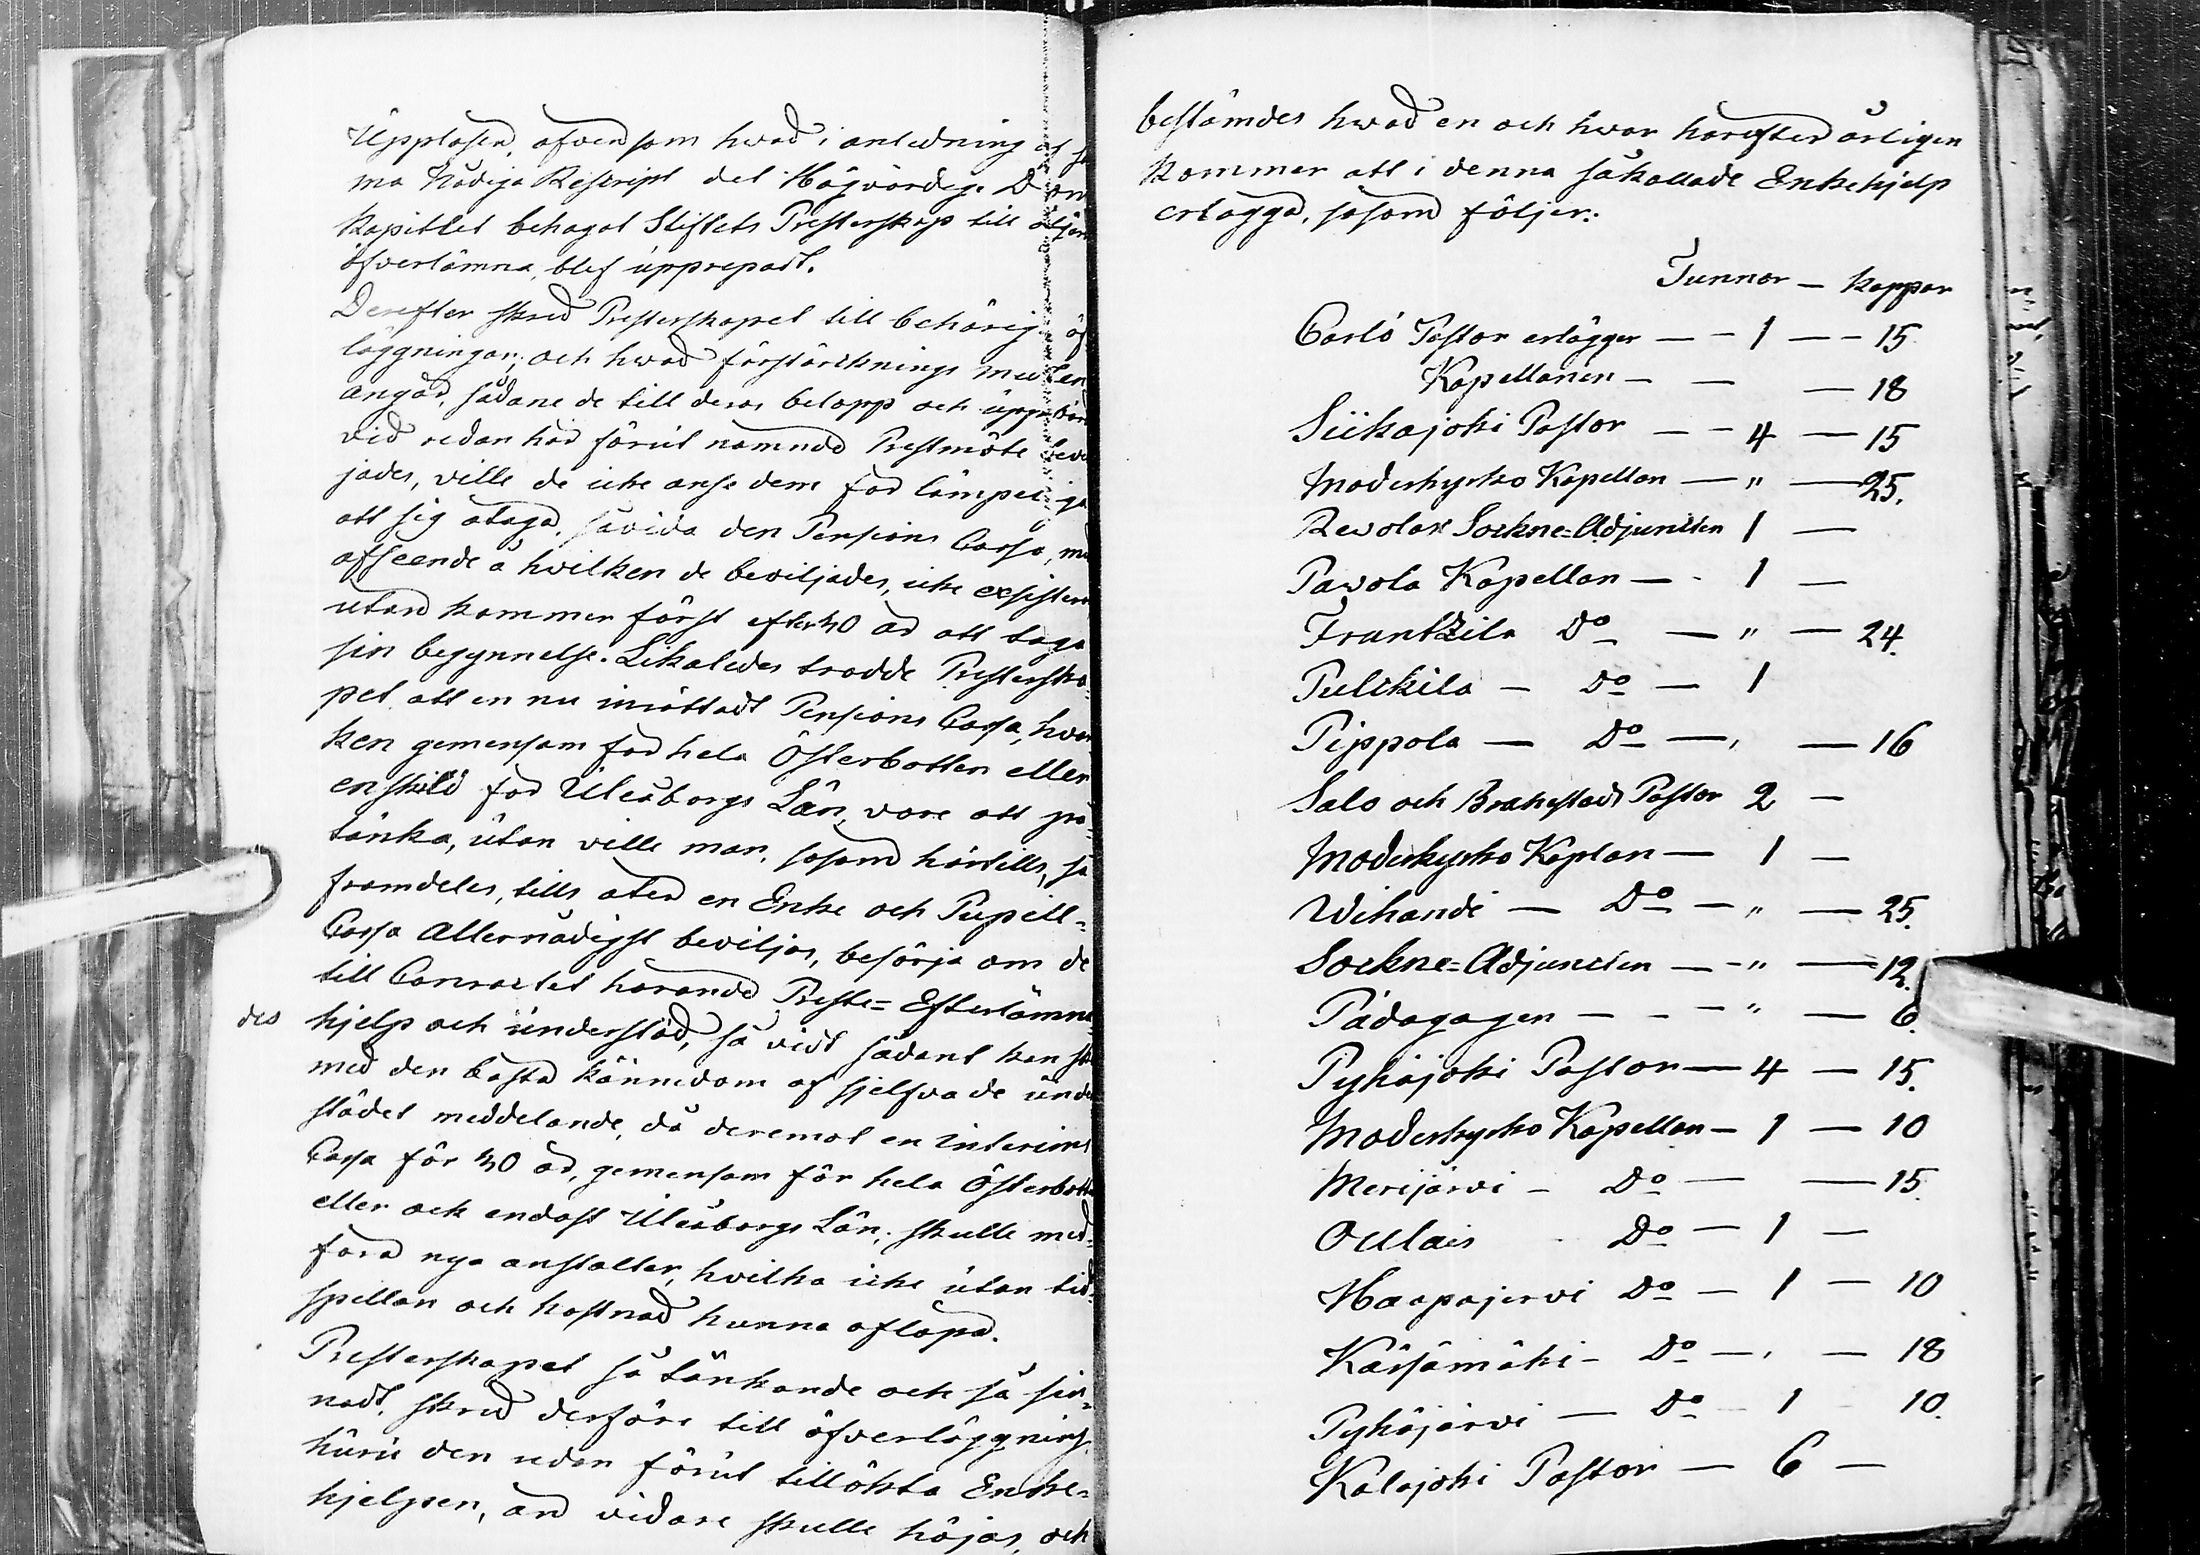 Upplasen, äfvensom hwad i anledning af
ma Nådiga Rescript det Högvördige Dom
kapitlet behagat Stiftets Presterskap till
öfverlämna, blef upprepadt.
Derefter skred Presterskapet till behörig öf
läggningar, och hwad förstärknings
angår, sådane de till deras belopp och
vid redan här förut nämnde Prestmöte
jades, ville de icke anse dem för lämpeliga
att sig åtaga, såvida den Pensions Cassa, med
afseende å hvilken de beviljades, icke existera
utan kommer först efter 40 år att taga
sin begynnelse. Likaledes trodde Presterska-
pet att en nu inrättadt Pensions Cassa, hvar
ken gemensam för hela Österbotten eller
enskild för Uleåborgs Län, vore att på-
tänka, utan ville man, såsom härtills, så
framdeles, tills åter en Enke och Pupill-
Cassa Allernådigst beviljas, besörja om de
till Contractet hörande Preste-Efterlämna-
des hjelp och understöd, så vidt sådant kan ske
med den bästa kännedom af sjelfva de under
stödet meddelande, då deremot en interims
Cassa för 40 år, gemensam för hela Österbotten
eller ock endast Uleåborgs Län, skulle med-
föra nya anstalter, hvilka icke utan tid-
spillan och kostnad kunna aflöpa.
Presterskapet så tänkande och så sin-
nadt, skred derföre till öfverläggning,
huru den redan förut tillökta Enke-
hjelpen, än vidare skulle höjas, och
bestämdes hwad en och hvar härefter årligen
kommer att i denna såkallade Enkehjelp
erlägga, såsom följer:
Tunnor — kappar
Carlö Pastor erlägger — — 1 — — 15
Kapellanen — — — 18
Siikajoki Pastor — — 4 — 15
Moderkyrko Kapellan — " — 25.
Revolax Sockne=Adjuncten 1 —
Pavola Kapellan — - 1 —
Frantzila Do — " — 24.
Pulckila — Do — 1
Pippola — Do — , — 16
Salo och Brahestads Pastor 2 —
Moderkyrko Kaplan — 1 —
Wihandi — Do — " — 25.
Sockne=Adjuncten — — " — 12.
Pädagogen — - — " — 6.
Pyhäjoki Pastor — 4 — 15.
Moderkyrko Kapellan — 1 — 10
Merijärvi — Do — — 15.
Oulais Do — 1 —
Haapajervi Do — 1 — 10
Kärsämäki — Do — , — 18
Pyhäjärvi — Do — 1 10.
Kalajoki Pastor — 6 —